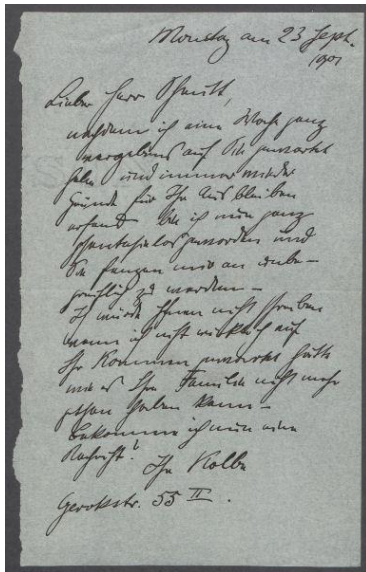 Montag am 23 Sept.
1901
Lieber Herr Schmitt,
nachdem ich eine Woche ganz
vergebens auf Sie gewartet
habe und immer wieder
Gründe für Ihr Ausbleiben
erfand bin ich nun ganz
phantasielos geworden und
Sie fangen mir an unbe-
greiflich zu werden –
Ich würde Ihnen nicht schreiben
wenn ich nicht wirklich auf
Ihr Kommen gewartet hätte
wie es Ihre Familie nicht mehr
gethan haben kann –
Bekomme ich nun eine
Nachricht?
Ihr Kolbe
Gerokstr. 55 II.